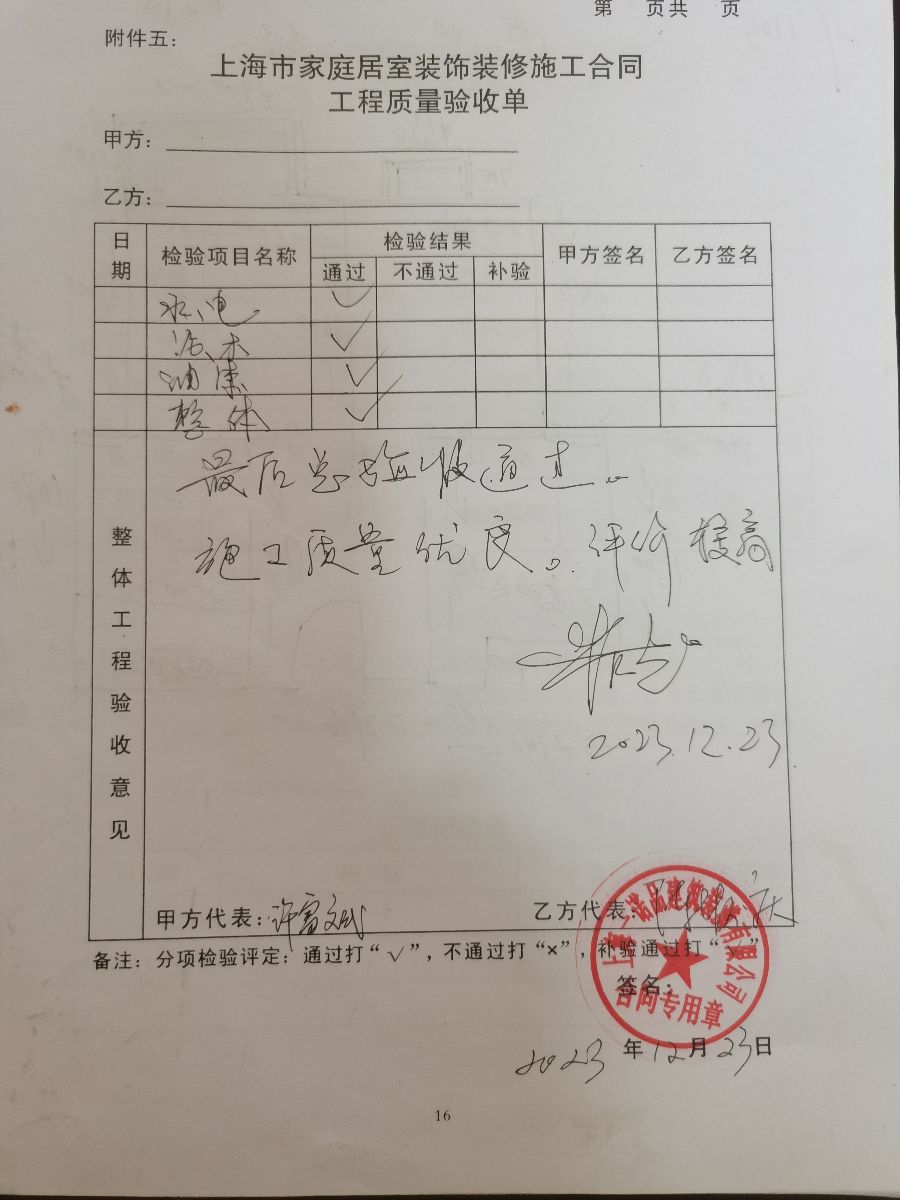 第 页共 页
附件五：
上海市家庭居室装饰装修施工合同
工程质量验收单
甲方：
乙方：
日期 检验项目名称 检验结果 甲方签名 乙方签名
通过 不通过 补验
水电 ✓
泥木 ✓
油漆 ✓
整体 ✓
整体工程验收意见
最后总验收通过。
施工质量优良。评价较高
2023.12.23
甲方代表：许富文 乙方代表：
备注：分项检验评定：通过打“√”，不通过打“×”，补验通过打“
签名：
上海一诺品建筑装饰有限公司
合同专用章
2023年12月23日
16